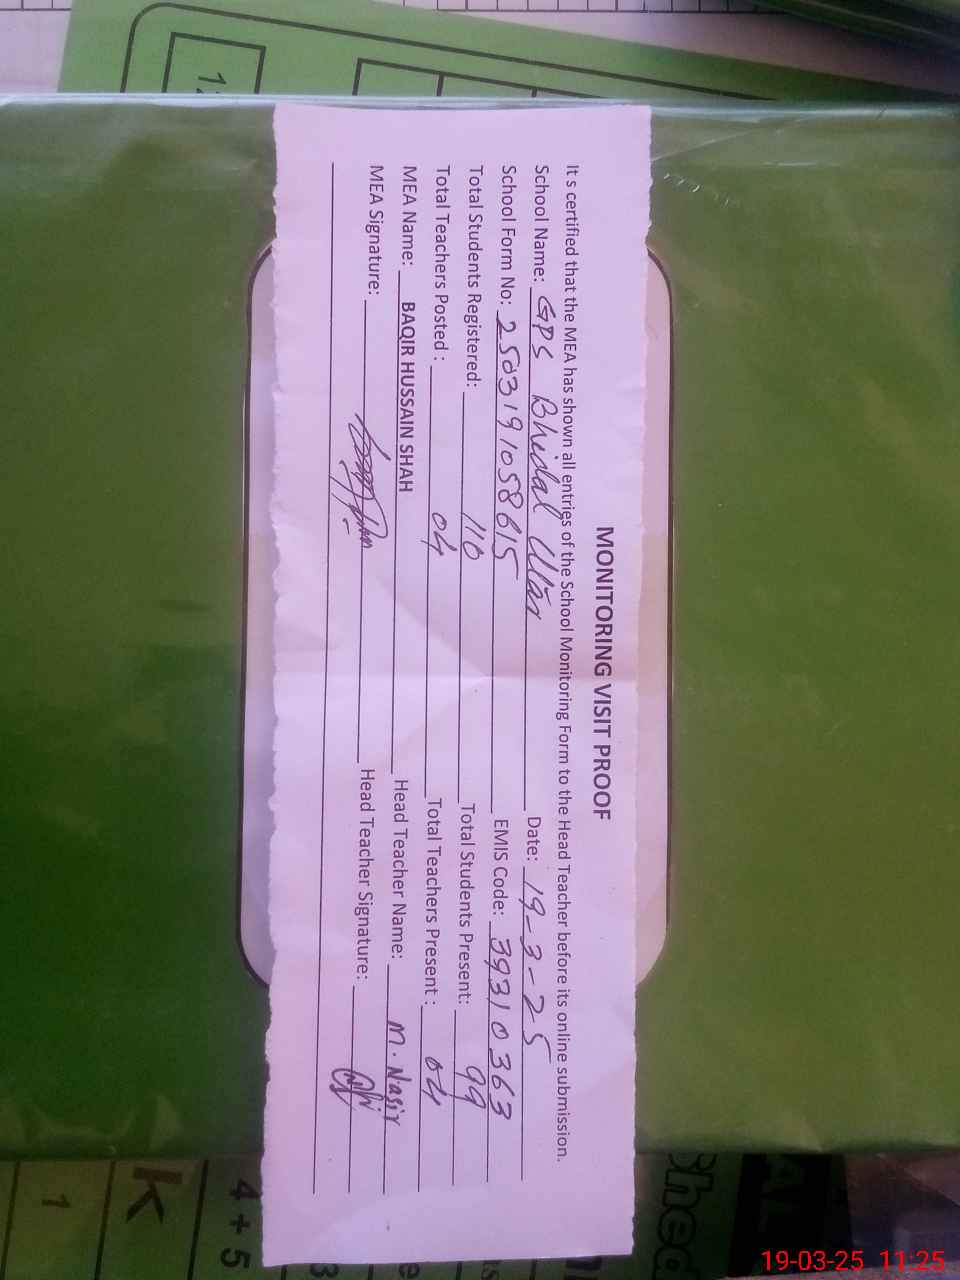 MONITORING VISIT PROOF
It s certified that the MEA has shown all entries of the School Monitoring Form to the Head Teacher before its online submission.
School Name: GPS Bhidal Date: 19-3-25
School Form No: 2503191058615 EMIS Code: 39310363
Total Students Registered: 110 Total Students Present: 99
Total Teachers Posted : 04 Total Teachers Present : 04
MEA Name: BAQIR HUSSAIN SHAH Head Teacher Name: M. Nasir
MEA Signature: Head Teacher Signature:
K
4 + 5
1
19-03-25 11:25